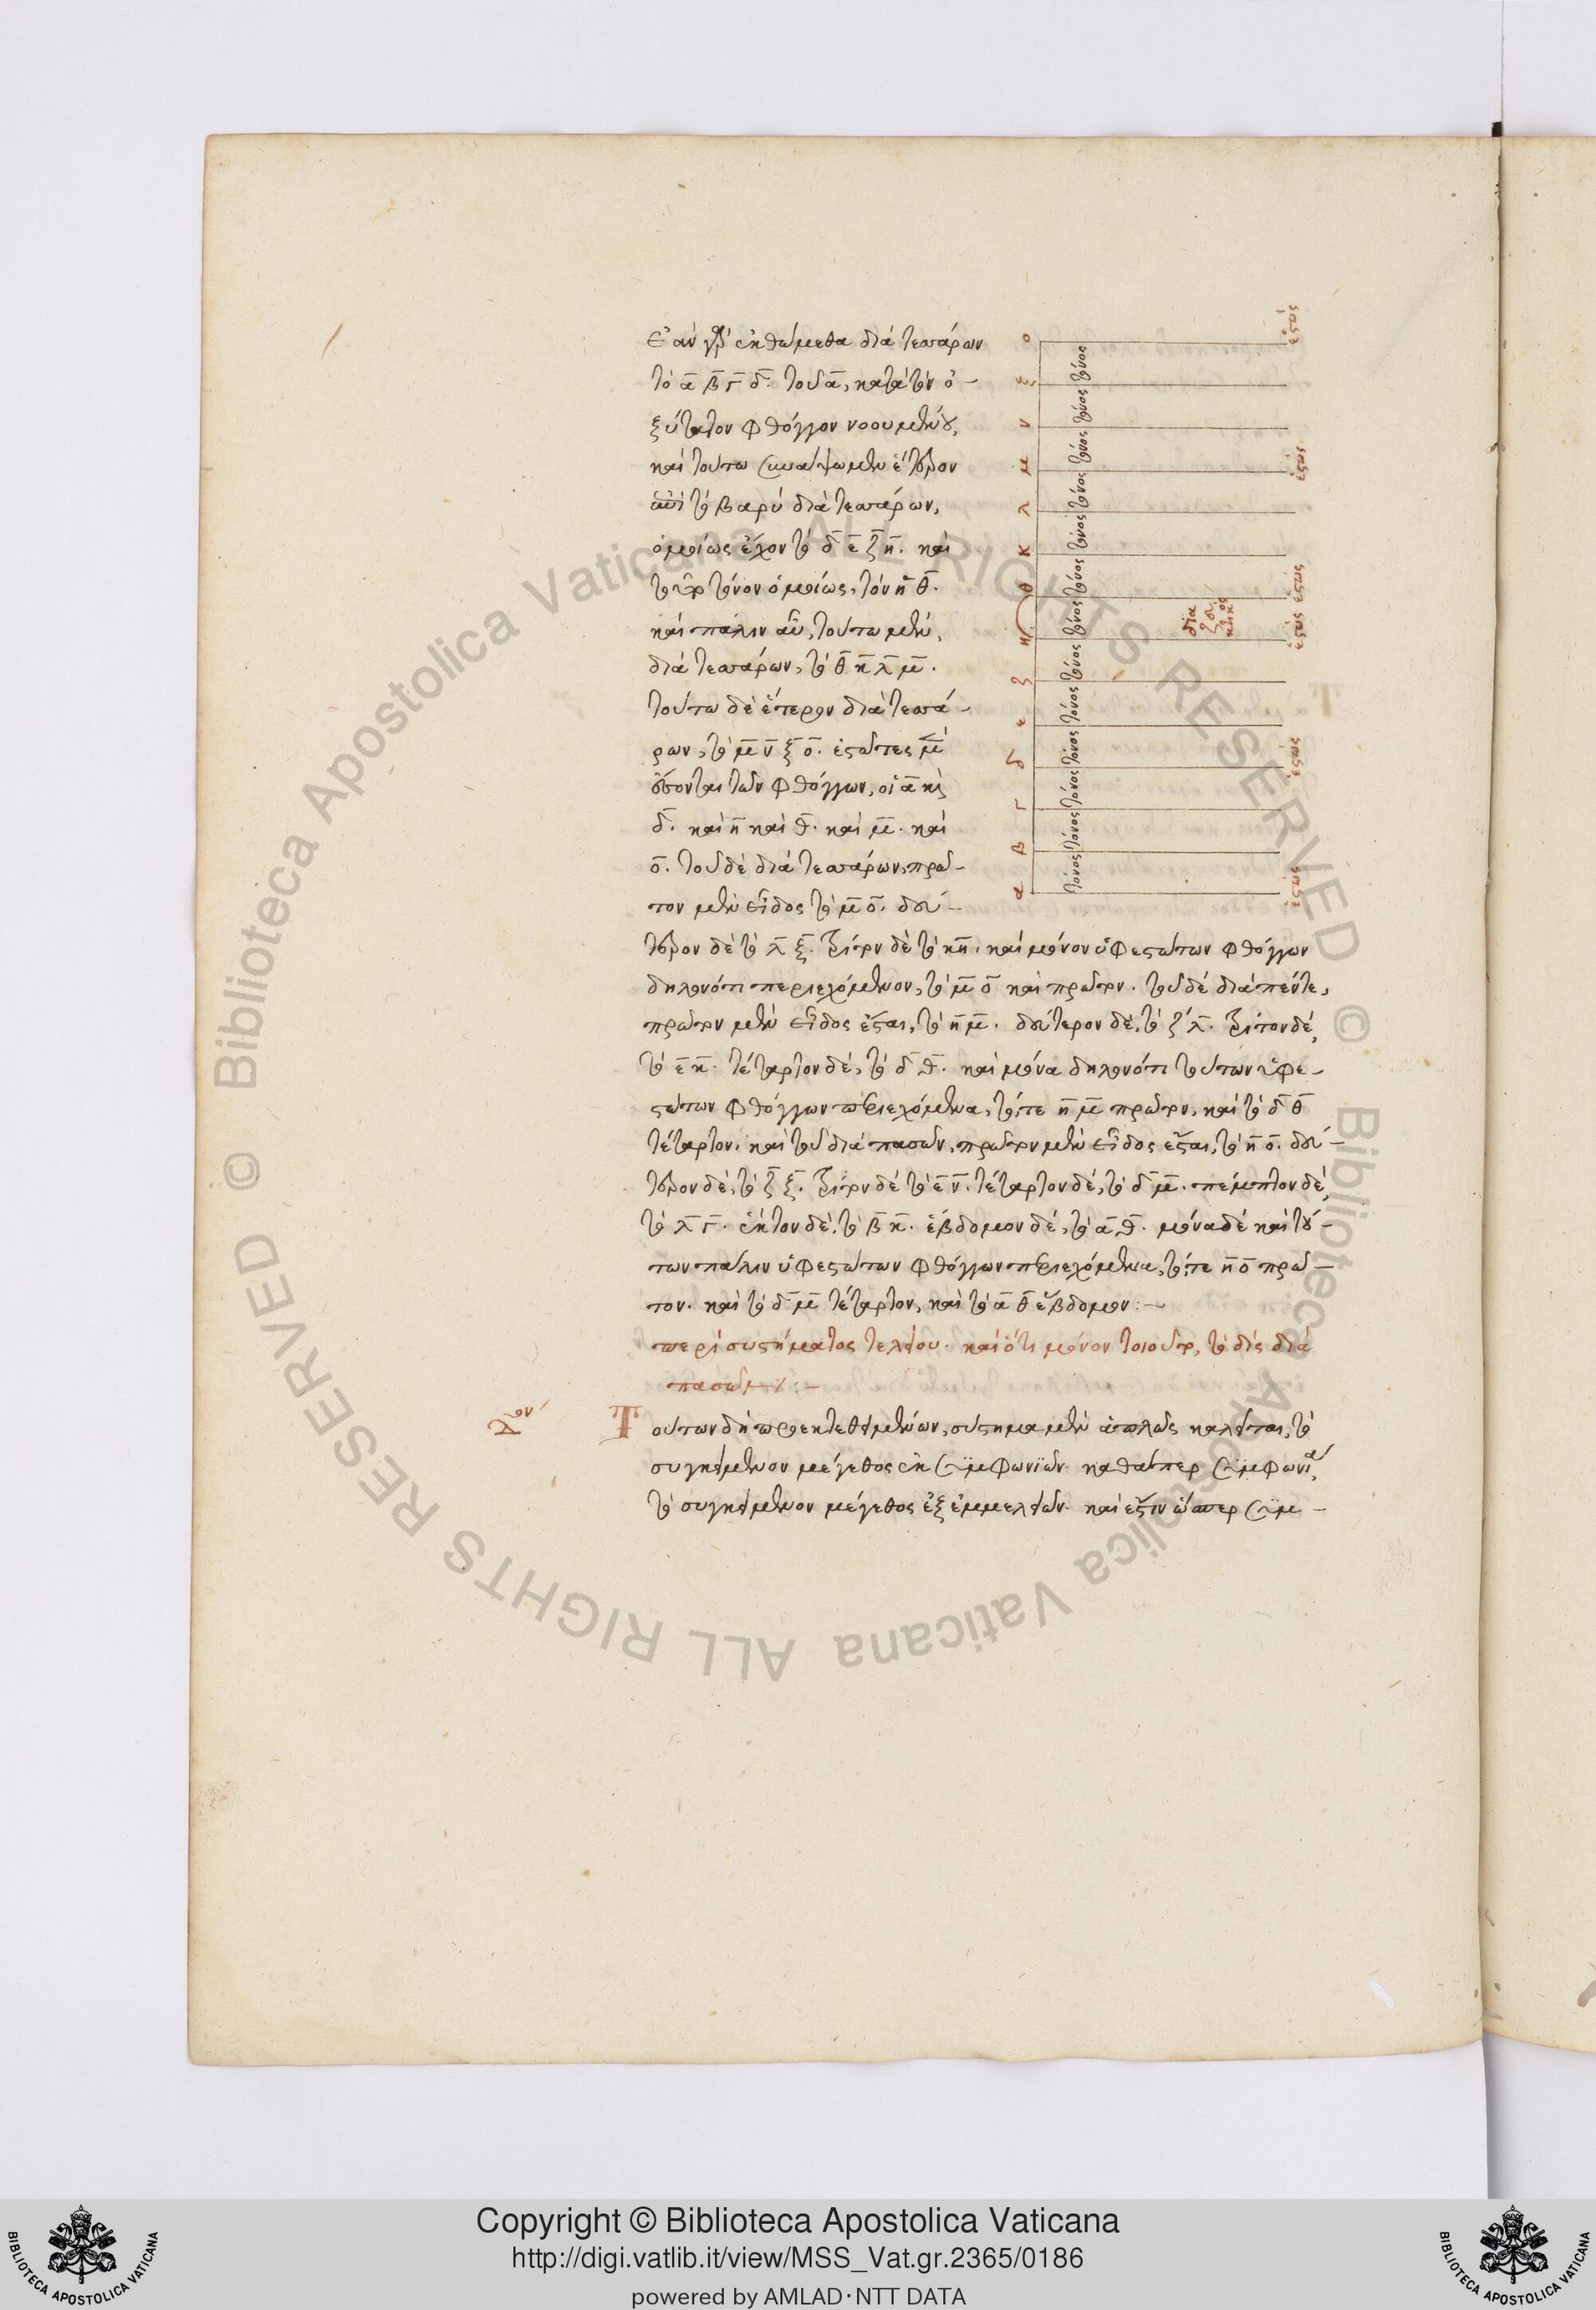 Ἐὰν γὰρ ἐκθώμεθα διὰ τεσσάρων
τὸ α̅ β̅ γ̅ δ̅. τοῦ α̅, κατὰ τὸν ὀ-
ξύτατον φθόγγον νοουμένου,
καὶ τούτω συνάψωμεν ἕτερον
ἐπὶ τὸ βαρὺ διὰ τεσσάρων,
ὁμοίως ἔχον τὸ δ̅ ε̅ ζ̅ η̅. καὶ
τόνον ὁμοίως, τὸν η̅ θ̅.
καὶ πάλιν αὖ, τούτω μὲν,
διὰ τεσσάρων, τὸ θ̅ κ̅ λ̅ μ̅.
τούτω δὲ ἕτερον διὰ τεσσά-
ρων, τὸ μ̅ ν̅ ξ̅ ο̅. ἑστῶτες μὲν
ἔσονται τῶν φθόγγων, οἱ α̅ καὶ
δ̅. καὶ η̅ καὶ θ̅. καὶ μ̅. καὶ
ο̅. τοῦ δὲ διὰ τεσσάρων, πρῶ-
τον μὲν εἶδος τὸ μ̅ ο̅. δεύ-
τερον δὲ τὸ λ̅ ξ̅. τρίτον δὲ τὸ κ̅ν̅. καὶ μόνον ὑφεστώτων φθόγγων
δηλονότι περιεχόμενον, τὸ μ̅ ο̅ καὶ πρῶτον. τοῦ δὲ διὰ πέντε,
πρῶτον μὲν εἶδος ἔσται, τὸ η̅ μ̅. δεύτερον δὲ, τὸ ζ̅ λ̅. τρίτον δὲ,
τὸ ε̅ κ̅. τέταρτον δὲ, τὸ δ̅ θ̅. καὶ μόνα δηλονότι τούτων ὑφε-
στώτων φθόγγων περιεχόμενα, τό, τε η̅ μ̅ πρῶτον, καὶ τὸ δ̅ θ̅
τέταρτον. καὶ τοῦ διὰ πασῶν, πρῶτον μὲν εἶδος ἔσται, τὸ η̅ ο̅. δεύ-
τερον δὲ, τὸ ζ̅ ξ̅. τρίτον δὲ τὸ ε̅ ν̅. τέταρτον δὲ, τὸ δ̅ μ̅. πέμπτον δὲ,
τὸ λ̅ γ̅. ἕκτον δὲ, τὸ β̅ κ̅. ἕβδομον δὲ, τὸ α̅ θ̅. μόνα δὲ καὶ τού-
των πάλιν ὑφεστώτων φθόγγων περιεχόμενα, τό, τε η̅ ο̅ πρῶ-
τον. καὶ τὸ δ̅ μ̅ τέταρτον, καὶ τὸ α̅ θ̅ ἕβδομον :-
περὶ συστήματος τελείου. καὶ ὅτι μόνον τοιοῦτο, τὸ δὶς διὰ
πασῶν :-
Τούτων δὴ προεκτεθειμένων, σύστημα μὲν ἁπλῶς καλεῖται, τὸ
συγκείμενον μέγεθος ἐκ συμφωνιῶν. καθάπερ συμφωνία,
τὸ συγκείμενον μέγεθος ἐξ ἐμμελειῶν. καὶ ἔστιν ὥσπερ συμ-
ο
ξ
ν
μ
λ
κ
θ
η
ζ
ε
δ
γ
β
α
τόνος
τόνος
τόνος
τόνος
τόνος
τόνος
τόνος
τόνος
τόνος
τόνος
τόνος
τόνος
τόνος
ἑστώς
ἑστώς
ἑστώς
ἑστώς
ἑστώς
ἑστώς
© Biblioteca Apostolica Vaticana ALL RIGHTS RESERVED © Biblioteca Apostolica Vaticana ALL RIGHTS RESERVED
Copyright © Biblioteca Apostolica Vaticana
http://digi.vatlib.it/view/MSS_Vat.gr.2365/0186
powered by AMLAD·NTT DATA
BIBLIOTECA APOSTOLICA VATICANA
BIBLIOTECA APOSTOLICA VATICANA